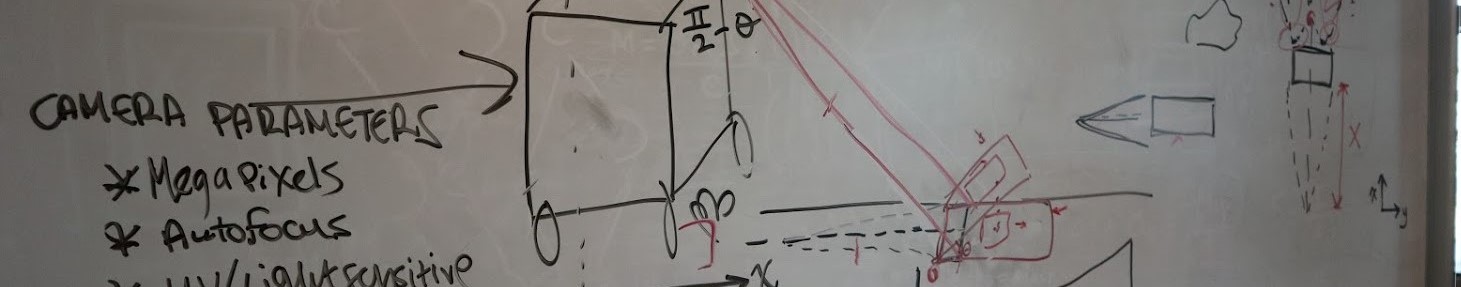 CAMERA PARAMETERS
* MegaPixels
* Autofocus
* UV/Lightsensitive
π/2 - θ
X
X
x
y